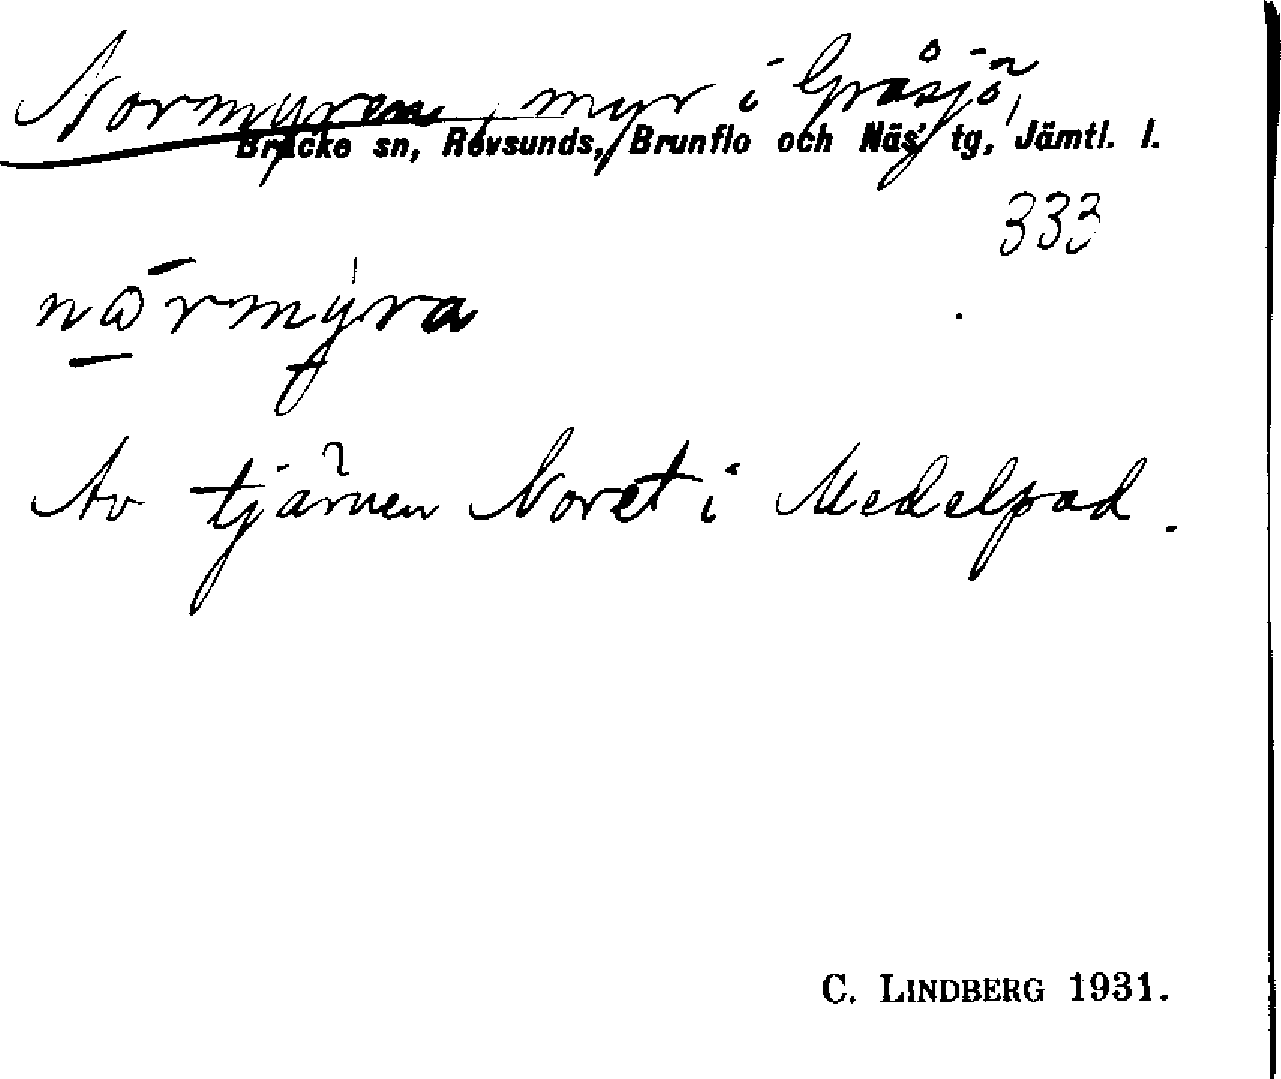 Normyren, myr i Gråsjö,
Bräcke sn, Revsunds, Brunflo och Näs' tg, Jämtl. l.
333
nɷ̄rmýra
Av tjärnen Noret i Medelpad.
C. LINDBERG 1931.